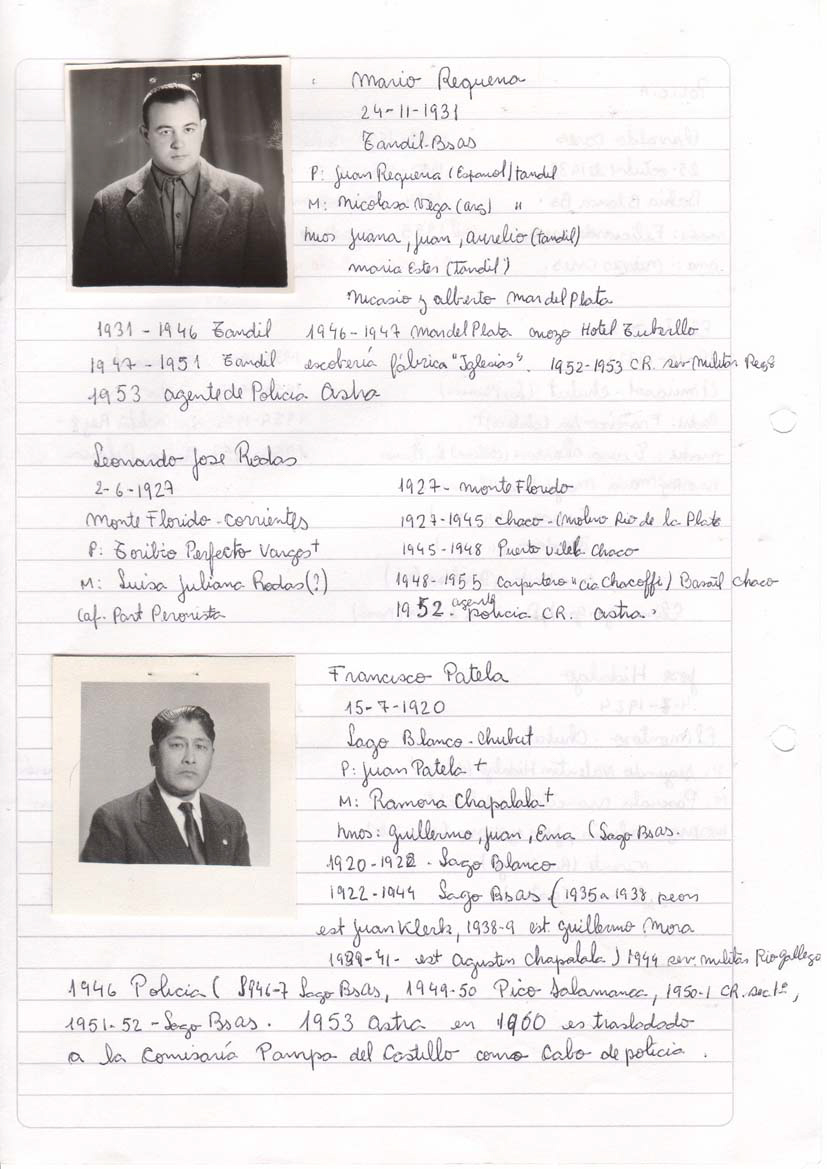 Mario Requena
24-11-1931
Tandil-BsAs
P: Juan Requena (Español) tandil
M: Nicolasa Vega (arg) "
hnos Juana, Juan, Aurelio (tandil)
Maria Ester (Tandil)
Nicasio y Alberto Mar del Plata
1931-1946 Tandil 1946-1947 Mar del Plata mozo Hotel
1947-1951 Tandil escobería fábrica "Iglesias". 1952-1953 CR. ser militar Reg 8
1953 agente de Policia Astra
Leonardo José Rodas
2-6-1927
Monte Florido-Corrientes
P: Toribio Perfecto Varges+
M: Luisa Juliana Rodas (?)
(af. Part Peronista
1927- Monte Florido
1927-1945 Chaco-(Molino Rio de la Plate
1945-1948 Puerto Vilela Chaco
1948-1955 Carpintero "Cia Chacoffi) Chaco
1952- agente policia CR. Astra.
Francisco Patela
15-7-1920
Lago Blanco-Chubut
P: Juan Patela +
M: Ramona Chapalala+
hnos: Guillermo, Juan, Ema (Lago BsAs.
1920-1922 - Lago Blanco
1922-1944 Lago BsAs (1935 a 1938 peon
est Juan Klerk, 1938-9 est. Guillermo Mora
-41- est Agustin Chapalala) 1944 ser. militar Rio Gallego
1946 Policia (1946-7 Lago BsAs, 1949-50 Pico Salamanca, 1950-1 CR. sec 1º,
1951-52 - Lago BsAs. 1953 Astra en 1960 es trasladado
a la Comisaría Pampa del Castillo como Cabo de policia.